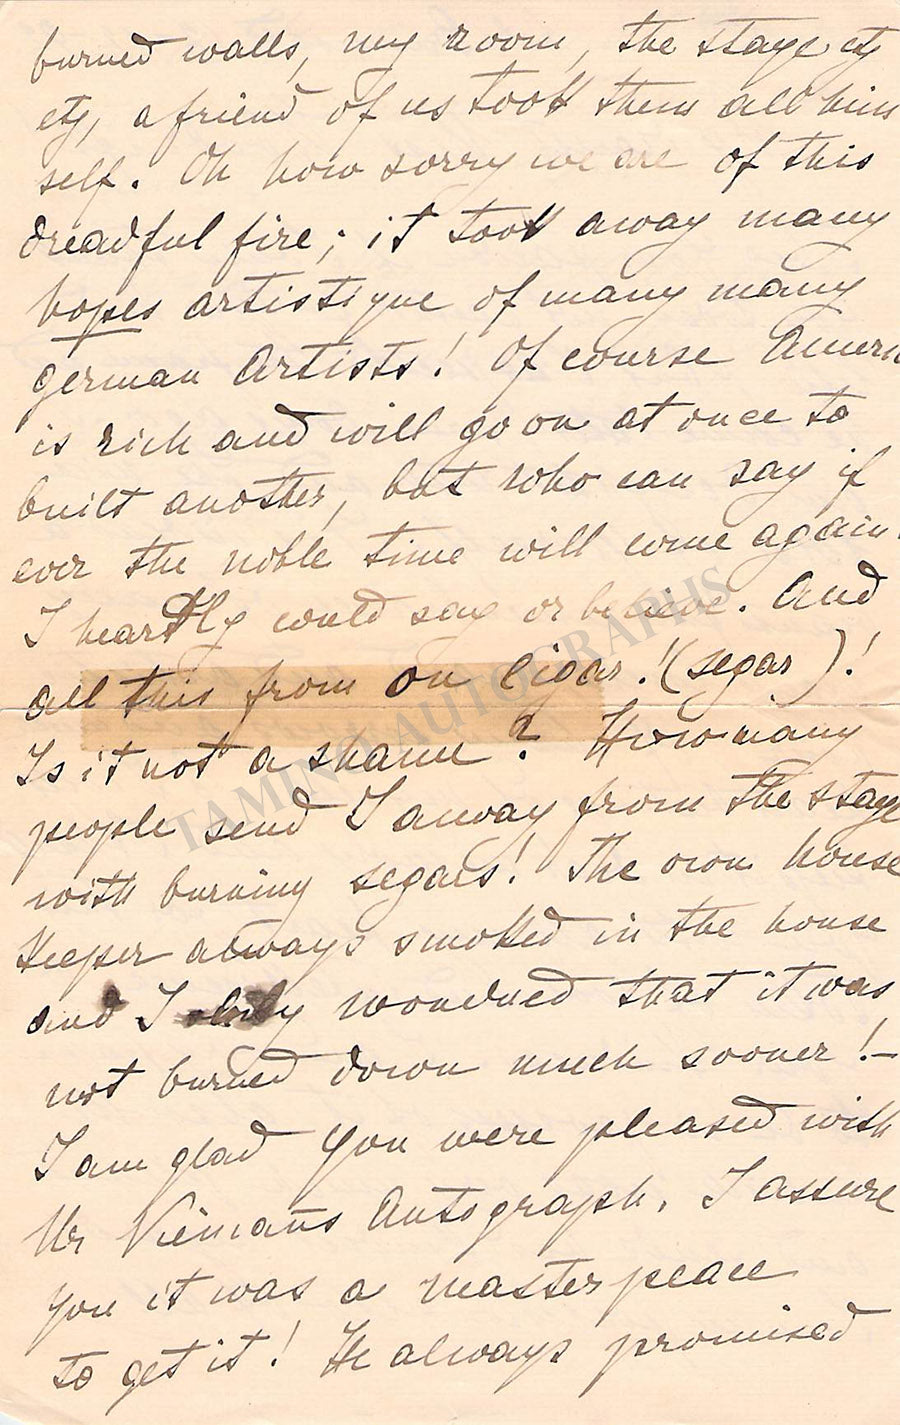 burned walls, my room, the stage etz
etz, a friend of us took them all him
self. Oh how sorry we are of this
dreadful fire; it took away many
hopes artistique of many many
german Artists! Of course Ameri
is rich and will go on at once to
built another, but who can say if
ever the noble time will come again.
I heartly could say or believe. And
all this from on Cigar!(segar)!
Is it not a shame? How many
people send I away from the stage
with burning segars! The own house
Keeper always smoked in the house
and I only wondred that it was
not burned down much sooner!-
I am glad you were pleased with
Mr Niemans Autograph. I assure
you it was a masterpeace
to get it! He always promised
TAMINO AUTOGRAPHS